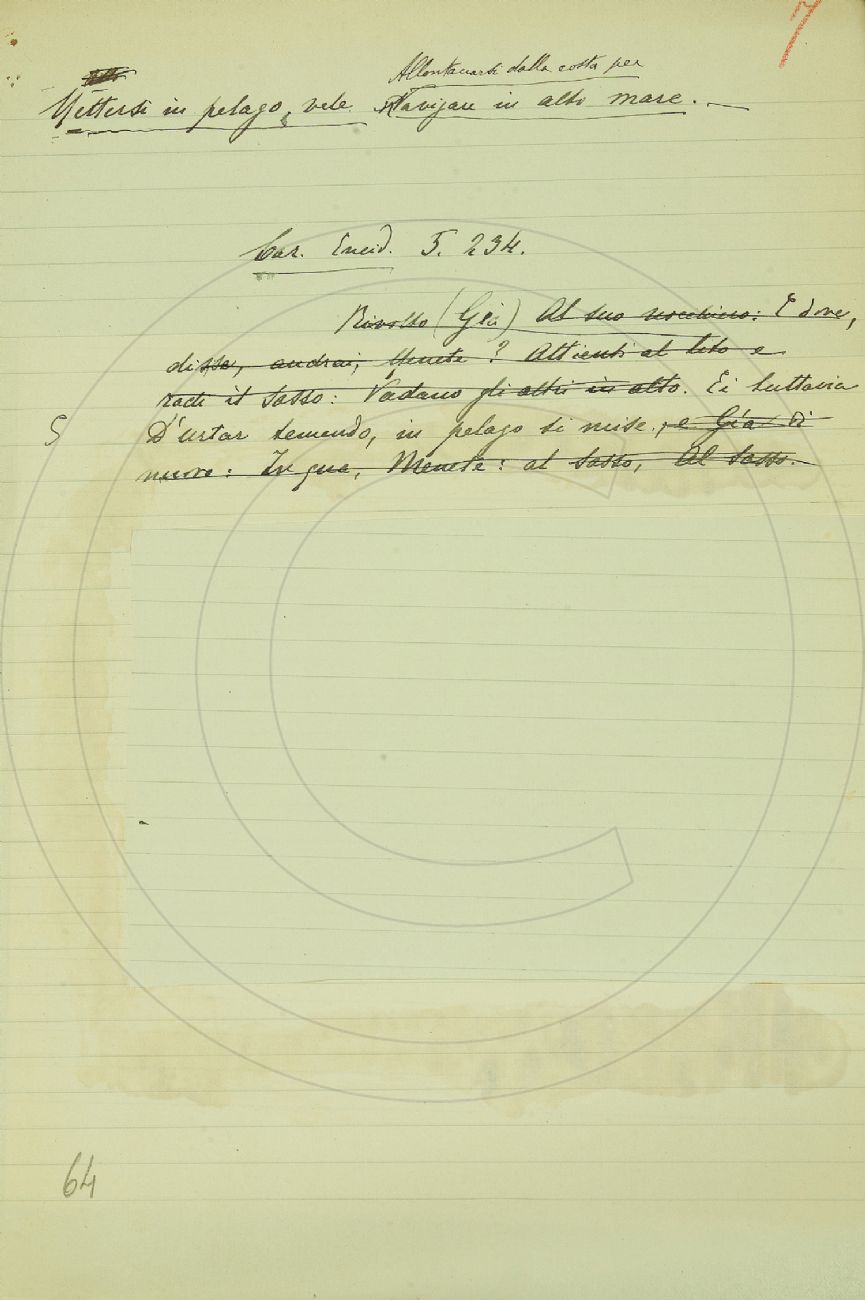 7
Allontanarsi dalla costa per
Mettersi in pelago, vale Navigare in alto mare. —
Car. Eneid. 5. 234.
Rivolto (Gìa) Al suo nocchiero: E dove,
disse, andrai, Menete? Attienti al lito e
radi il sasso: Vadano gli altri in alto. Ei tuttavia
5
D'urtar temendo, in pelago si mise, e Gía di
nuovo: In qua, Menete: al sasso, Al sasso.
64